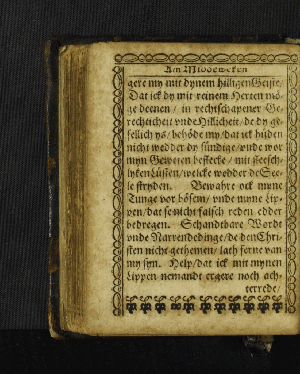 Am Middeweken
gere my mit dynem hilligen Geiste/
Dat ick dy mit reinem Herten mö-
ge deenen / in rechtschapener Ge-
rechticheit vnde Hillicheit / de dy ge-
fellich ys / behöde my / dat ick hüden
nicht wedder dy sündige / vnde vor
myn Geweten beflecke / mit fleesch-
lyken Lüsten / welcke wedder de See-
le stryden. Beware ock myne
Tunge vor bösem / vnde myne Lip-
pen / dat se nicht falsch reden edder
bedregen. Schandtbare Wordt
vnde Narrendedinge / de den Chri-
sten nicht gethemen / lath ferne van
my syn. Help / dat ick mit mynen
Lippen nemandt ergere noch ach-
terrede/